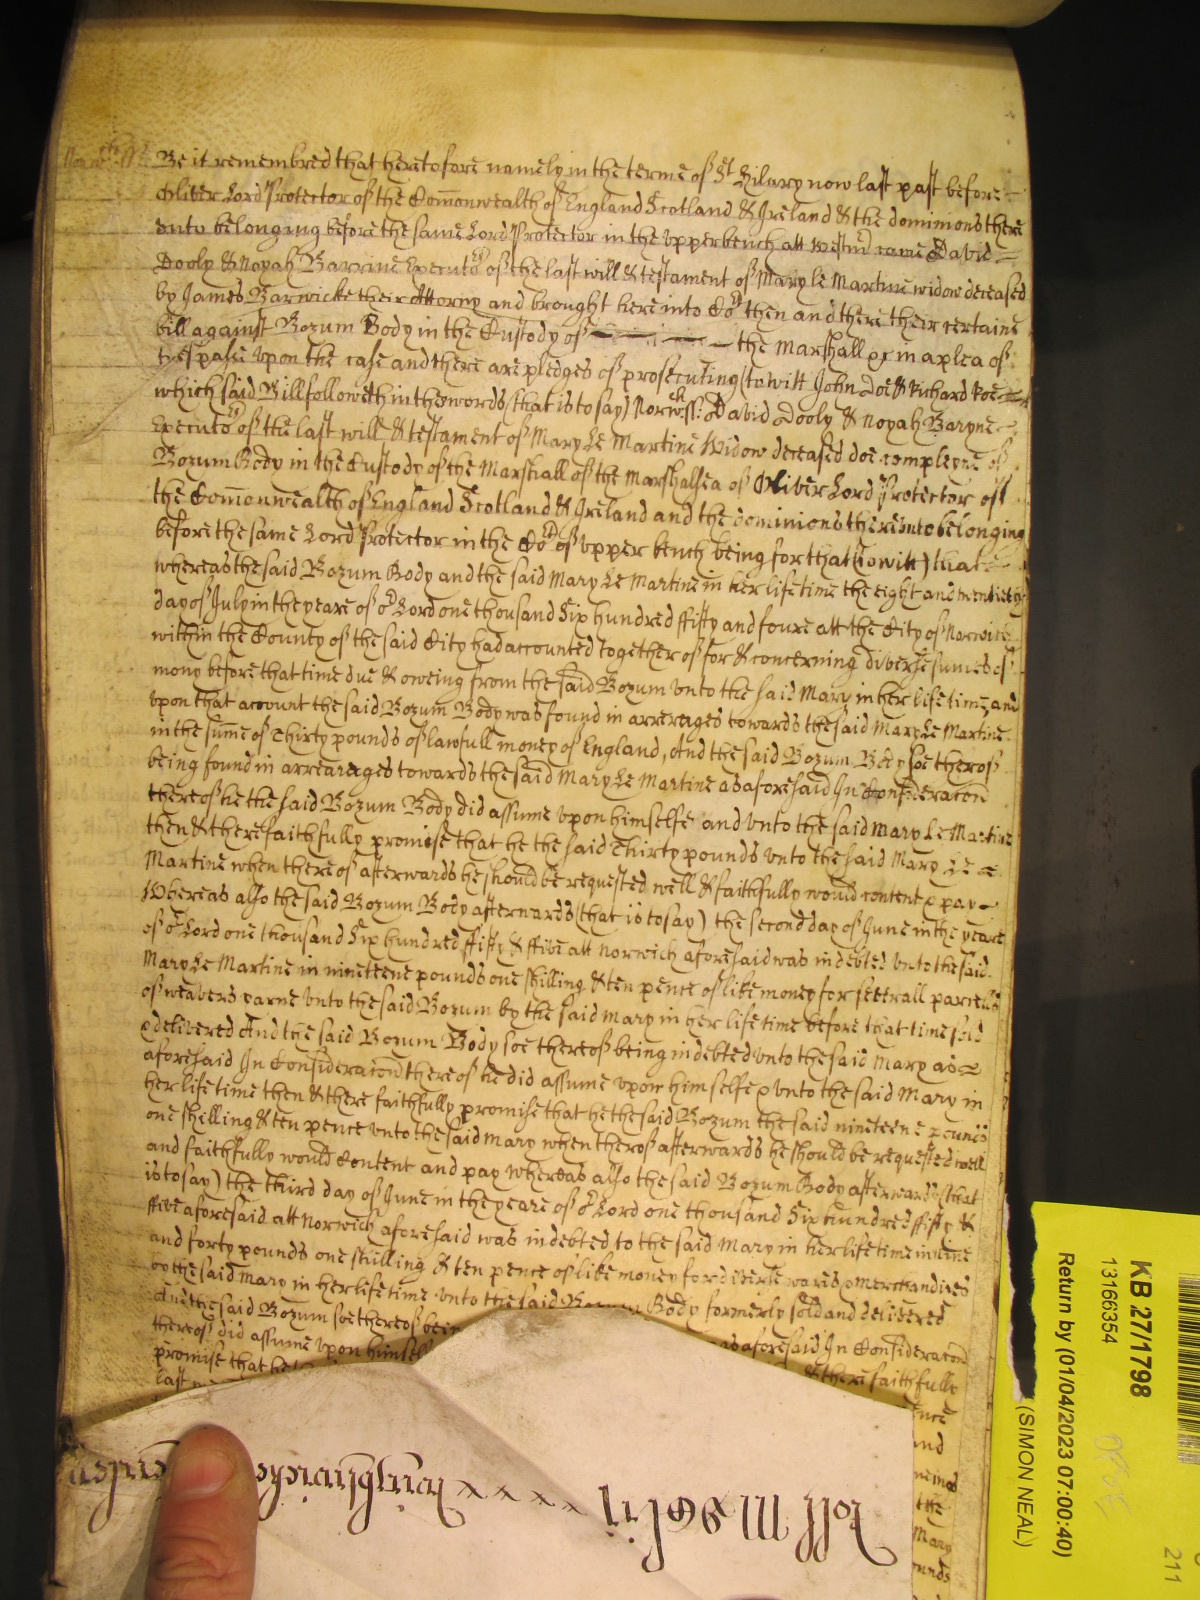 Norwch ss Be it remembred that heretofore namely in the terme of St Hilary now last past before
Oliver Lord Protector of the Comonwealth of England Scotland & Ireland & the dominions there
vnto belonging before the same Lord Protector in the vpper bench att Westm came David
Dooly & Noyah Barrine Executors of the last will & testament of Mary le Martine widow deceased
by James Barwicke their Attorny and brought here into Cort then and there their certaine
bill against Bozum Body in the Custody of the Marshall &c in a plea of
trespasse vpon the case and there are pledges of prosecuting (to witt John Doe & Richard Roe
which said Bill followeth in these words (that is to say) Norwch ss: David Dooly & Noyah Baryne
Executors of the last will & testament of Mary Le Martine Widow deceased doe compleyne of
Bozum Body in the Custody of the Marshall of the Marshalsea of Oliver Lord Protector of
the Comonwealth of England Scotland & Ireland and the dominions therevnto belonging
before the same Lord Protector in the Cort of vpper bench being for that (to witt) that
whereas the said Bozum Body and the said Mary Le Martine in her life time the eight and twentieth
day of July in the yeare of or Lord one thousand Six hundred ffifty and foure att the City of Norwich
within the County of the said City had accounted together of for & concerning diverse sumes of
mony before that time due & oweing from the said Bozum vnto the said Mary in her life time, and
vpon that account the said Bozum Body was found in arrerages towards the said Mary Le Martine
in the sume of Thirty pounds of lawfull money of England, And the said Bozum Body soe thereof
being found in arrearages towards the said Mary Le Martine as aforesaid In Consideracon
thereof he the said Bozum Body did assume vpon himselfe and vnto the said Mary Le Martine
then & there faithfully promise that he the said Thirty pounds vnto the said Mary Le
Martine when thereof afterwards he should be requested well & faithfully would content & pay
Whereas also the said Bozum Body afterwards (that is to say) the second day of June in the yeare
of or Lord one thousand Six hundred ffifty & ffive att Norwich aforesaid was indebted vnto the said
Mary Le Martine in nineteene pounds one shilling & ten pence of like money for severall parcells
of weavers yarne vnto the said Bozum by the said Mary in her life time before that time sold
& delivered And the said Bozum Body soe thereof being indebted vnto the said Mary as
aforesaid In Consideracon thereof he did assume vpon himselfe & vnto the said Mary in
her life time then & there faithfully promise that he the said Bozum the said nineteene pounds
one shilling & ten pence vnto the said Mary when therof afterwards he should be requested well
and faithfully would Content and pay Whereas also the said Bozum Body afterwards (that
is to say) the third day of June in the yeare of or Lord one thousand Six hundred ffifty &
ffive aforesaid att Norwich aforesaid was indebted to the said Mary in her life time in nine
and forty pounds one shilling & ten pence of like money for diverse wares & merchandizes
by the said Mary in her life time vnto the said Bozum Body formerly sold and delivered
And the said Bozum soe thereof bein as aforesaid In Consideracon
thereof did assume vpon himself & there faithfully
promise that he
last
ence
and
the
Mary
ounds
KB 27/1798
13166354
Return by (01/04/2023 07:00:40)
(SIMON NEAL)
211